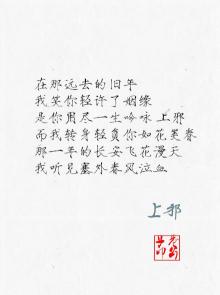 在那远去的旧年
我笑你轻许了姻缘
是你用尽一生吟咏上邪
而我转身轻负你如花美眷
那一年的长安飞花漫天
我听见塞外春风泣血
上邪